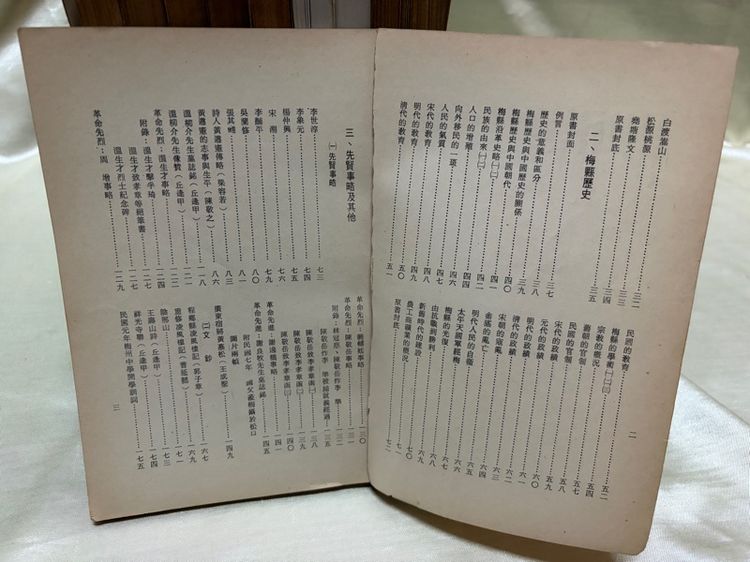 白渡嵩山……三二
松源桃源
堯塘隆文
原書封底……三四
二、梅縣歷史……三五
原書封面
例言……三七
歷史的意義和區分……三八
梅縣歷史與中國歷史的關係……三九
梅縣歷史與中國朝代……四〇
梅縣沿革史略(一二)……四一
民族的由來(一二)……四二
人口的增殖……四四
向外移民的一斑……四六
人民的氣質……四七
宋代的教育……四八
明代的教育……四九
清代的教育……五〇
……五一
民國的教育……五二
梅縣的學術(一二三)……五四
宗教的概況……五五
舊日的官制……五七
民國的官制……五八
宋代的政績……五九
元代的政績……六〇
明代的政績……六一
清代的政績……六二
宋朝的寇亂……六三
畲瑤的亂亡……六四
明代人民的自衛……六六
太平天國軍經梅……六六
梅縣的光復……六七
由民軍到勝利……六八
新舊時代的建設……六九
農工商礦業的概況……七〇
原書封底……七二
二
三、先賢事略及其他
㈠先賢事略
李世淳……七三
李象元……七五
楊仲興……七六
宋湘……七七
李黼平……七九
吳蘭修……八〇
張其翰……八三
詩人黃遵憲傳略(梁容若)……八六
黃遵憲的志事與生平(陳敬之)……一一八
溫柳介先生墓誌銘(丘逢甲)……一二一
溫柳介先生像贊(丘逢甲)……一二二
革命先烈:溫生才事略……一二二
附錄:溫生才擊孚琦……一二七
溫生才致李孝章等絕筆書……一二七
溫生才烈士紀念碑……一二九
革命先烈:周增事略……一二九
革命先烈:饒輔廷事略……一三〇
革命先烈:陳敬岳事略……一三一
附錄:林冠慈、陳敬岳炸李準……一三二
陳敬岳炸李準被捕就義經過……一三五
陳敬岳致李孝章函㈠……一三八
陳敬岳致李孝章函㈡……一三九
陳敬岳致李孝章函㈢……一四〇
革命先進:謝逸橋事略……一四一
革命先進:謝良牧先生墓誌……一四五
附民國七年 國父蒞梅攝於松口
圖片兩幀
廣東宿將黃慕松(王成聖)……一四九
㈡文鈔……一六七
程鄉縣凌風樓記(郭子章)……一六九
重修凌風樓記(曾延懿)……一七一
陰那山……一七三
王壽山詩(丘逢甲)……一七四
祥光寺聯(丘逢甲)……一七四
民國元年梅州中學開學訓詞……一七五
三